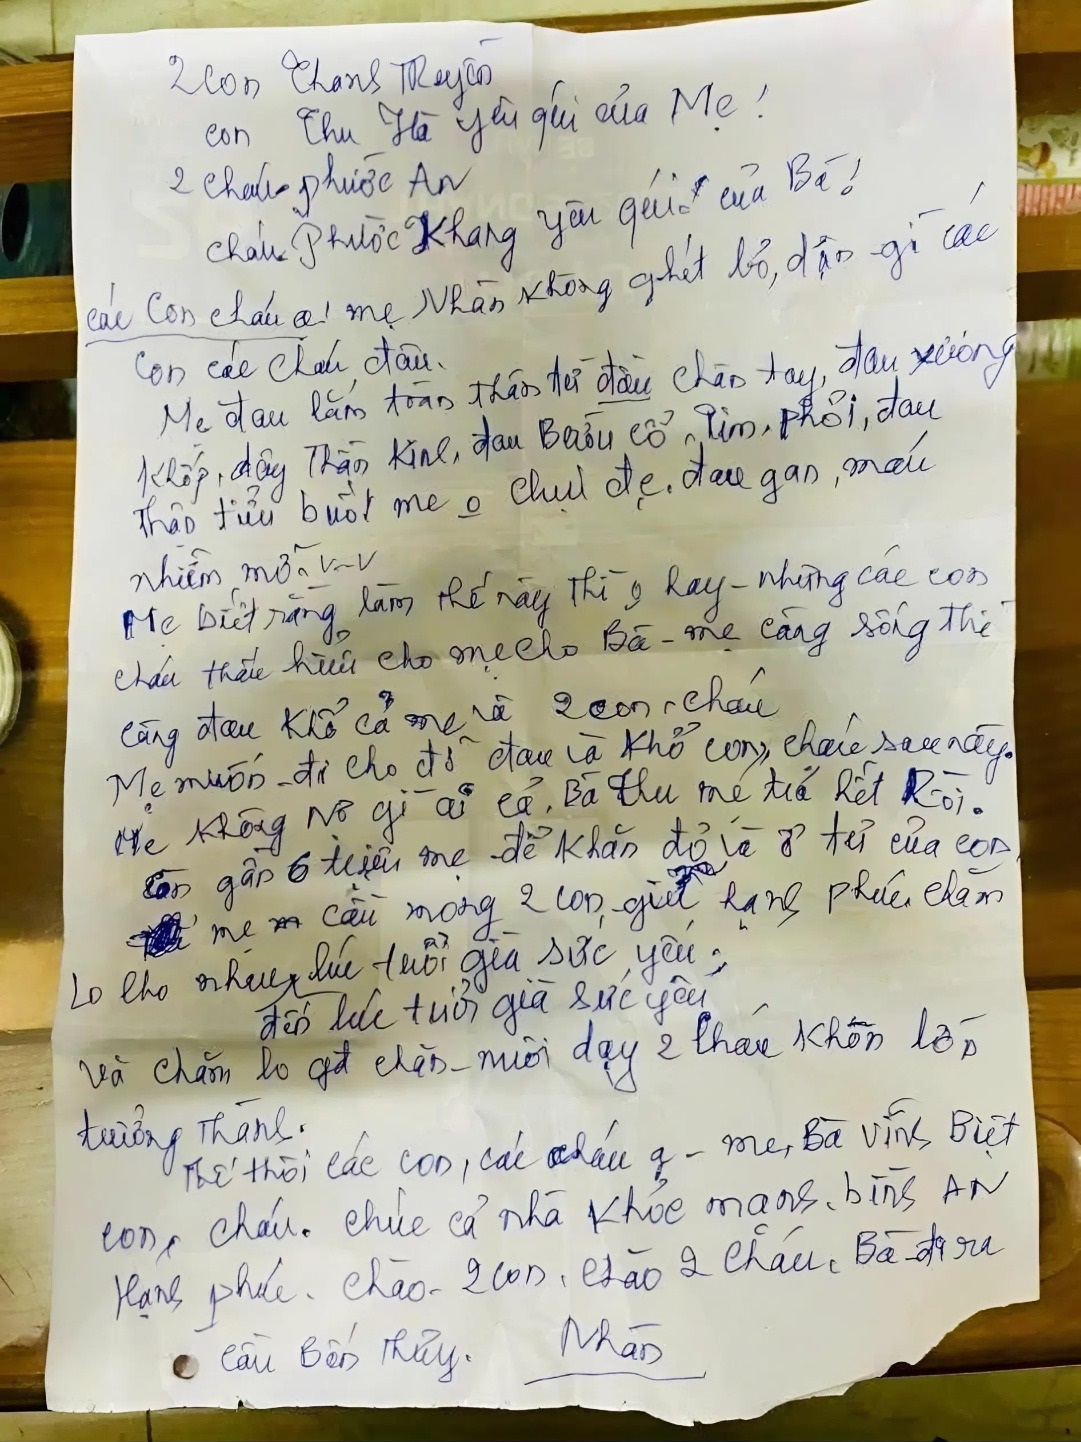 2 con Thanh Truyền
con Thu Hà yêu quí của Mẹ!
2 cháu phước AN
cháu Phước Khang yêu quí của Bà!
các con cháu ơi! mẹ Nhàn không ghét bỏ, dận gì các
con các cháu đâu.
Mẹ đau lắm toàn thân từ đầu chân tay, đau xương
khớp, dây Thần Kinh, đau Bướu cổ, Tim, phổi, đau
thận tiểu buốt mẹ o chịu đc, đau gan, máu
nhiễm mỡ v-v
Mẹ biết rằng làm thế này thì o hay - nhưng các con
cháu thấu hiểu cho mẹ cho Bà - mẹ càng sống thì
càng đau khổ cả mẹ và 2 con, cháu
Mẹ muốn đi cho đỡ đau và khổ con, cháu sau này.
Mẹ không nợ gì ai cả, Bà Thu mẹ trả hết Rồi.
còn gần 6 triệu mẹ để khăn đỏ và ở tủ của con
mẹ cầu mong 2 con, giữ hạnh phúc. chăm
lo cho nhau lúc tuổi già sức yếu.
đến lúc tuổi già sức yếu
và chăm lo gđ chăn nuôi dạy 2 cháu khôn lớn
trưởng Thành.
Thế thôi các con, các cháu ạ - mẹ, Bà vĩnh Biệt
con, cháu. chúc cả nhà khỏe mạnh, bình AN
Hạnh phúc. chào 2 con, chào 2 cháu. Bà đi ra
cầu Bến Thủy. Nhàn